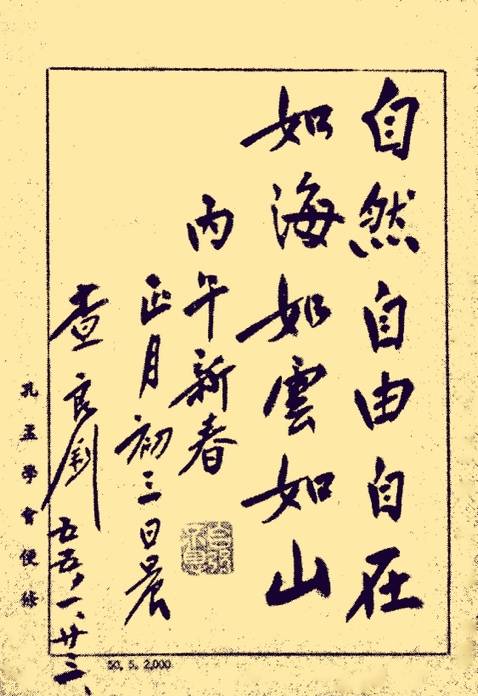 自然自由自在
如海如雲如山
丙午新春
正月初三日晨
查良釗
五五、一、廿三、
孔孟學會便條
50. 5. 2,000